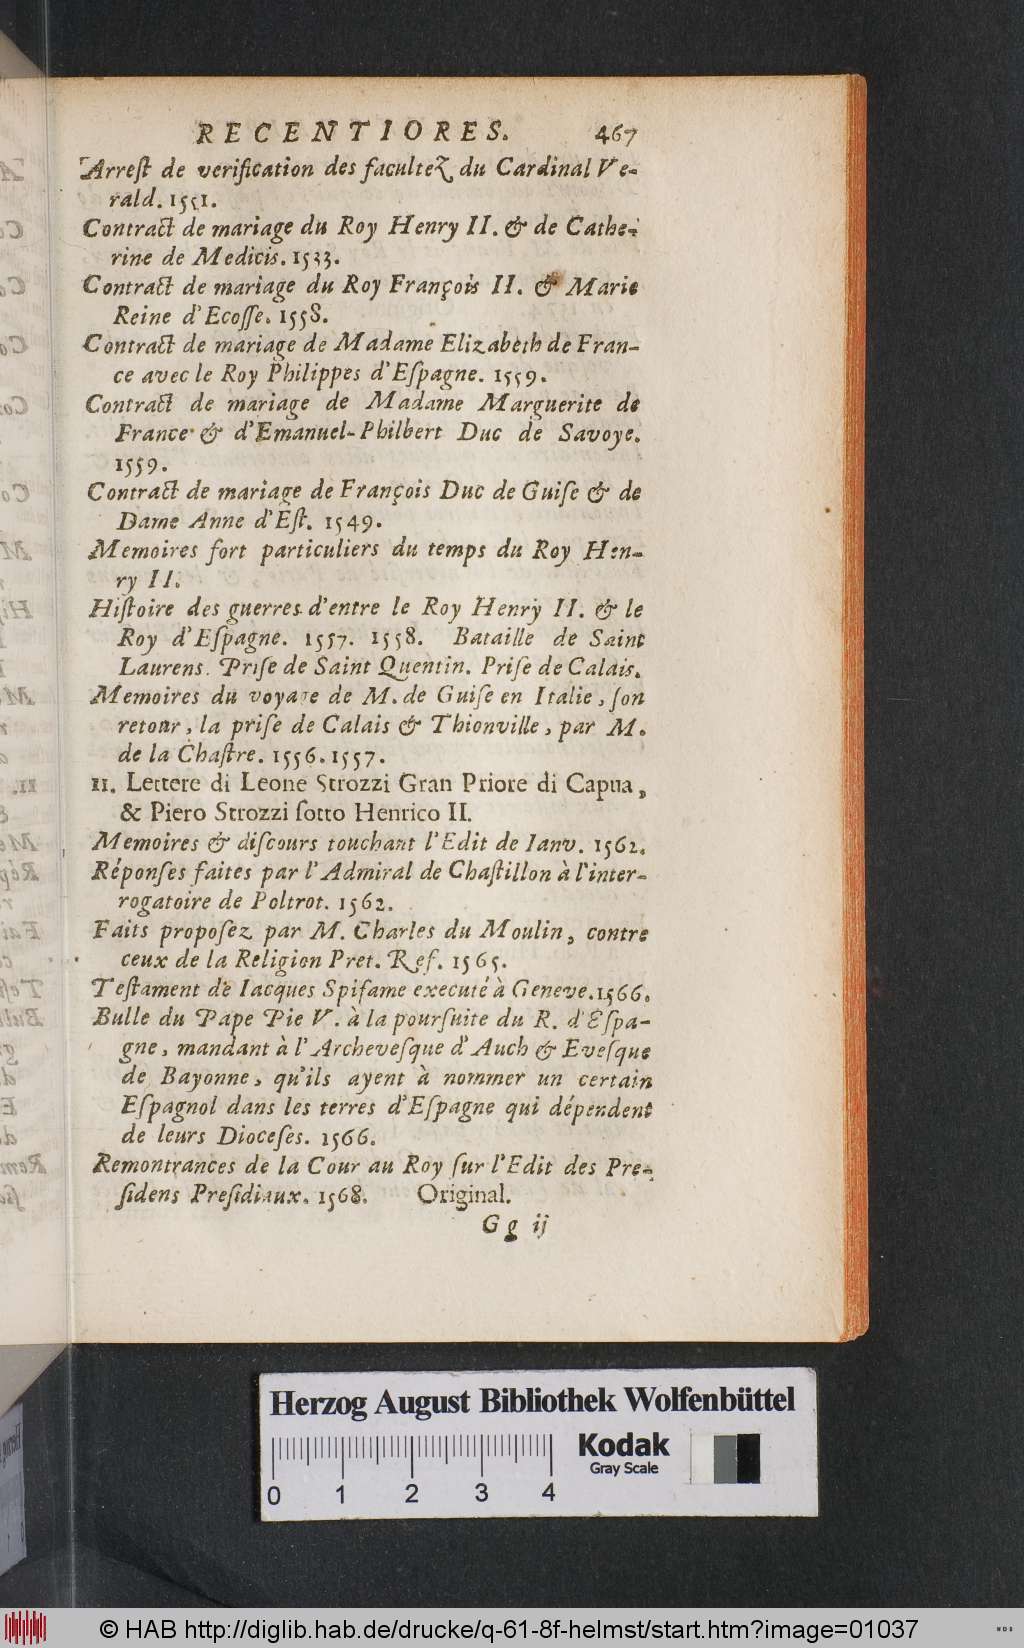 RECENTIORES. 467
Arreſt de verification des facultez du Cardinal Ve-
rald. 1551.
Contract de mariage du Roy Henry II. & de Cathe-
rine de Medicis. 1533.
Contract de mariage du Roy François II. & Marie
Reine d'Ecoſſe. 1558.
Contract de mariage de Madame Elizabeth de Fran-
ce avec le Roy Philippes d'Eſpagne. 1559.
Contract de mariage de Madame Marguerite de
France & d'Emanuel-Philbert Duc de Savoye.
1559.
Contract de mariage de François Duc de Guiſe & de
Dame Anne d'Eſt. 1549.
Memoires fort particuliers du temps du Roy Hen-
ry II.
Hiſtoire des guerres d'entre le Roy Henry II. & le
Roy d'Eſpagne. 1557. 1558. Bataille de Saint
Laurens. Priſe de Saint Quentin. Priſe de Calais.
Memoires du voyage de M. de Guiſe en Italie, ſon
retour, la priſe de Calais & Thionville, par M.
de la Chaſtre. 1556. 1557.
11. Lettere di Leone Strozzi Gran Priore di Capua,
& Piero Strozzi ſotto Henrico II.
Memoires & diſcours touchant l'Edit de Ianv. 1562.
Réponſes faites par l'Admiral de Chaſtillon à l'inter-
rogatoire de Poltrot. 1562.
Faits propoſez par M. Charles du Moulin, contre
ceux de la Religion Pret. Ref. 1565.
Teſtament de Iacques Spifame executé à Geneve. 1566.
Bulle du Pape Pie V. à la pourſuite du R. d'Eſpa-
gne, mandant à l'Archeveſque d'Auch & Eveſque
de Bayonne, qu'ils ayent à nommer un certain
Eſpagnol dans les terres d'Eſpagne qui dépendent
de leurs Dioceſes. 1566.
Remontrances de la Cour au Roy ſur l'Edit des Pre-
ſidens Preſidiaux. 1568. Original.
G g ij
Herzog August Bibliothek Wolfenbüttel
Kodak
Gray Scale
0 1 2 3 4
© HAB http://diglib.hab.de/drucke/q-61-8f-helmst/start.htm?image=01037